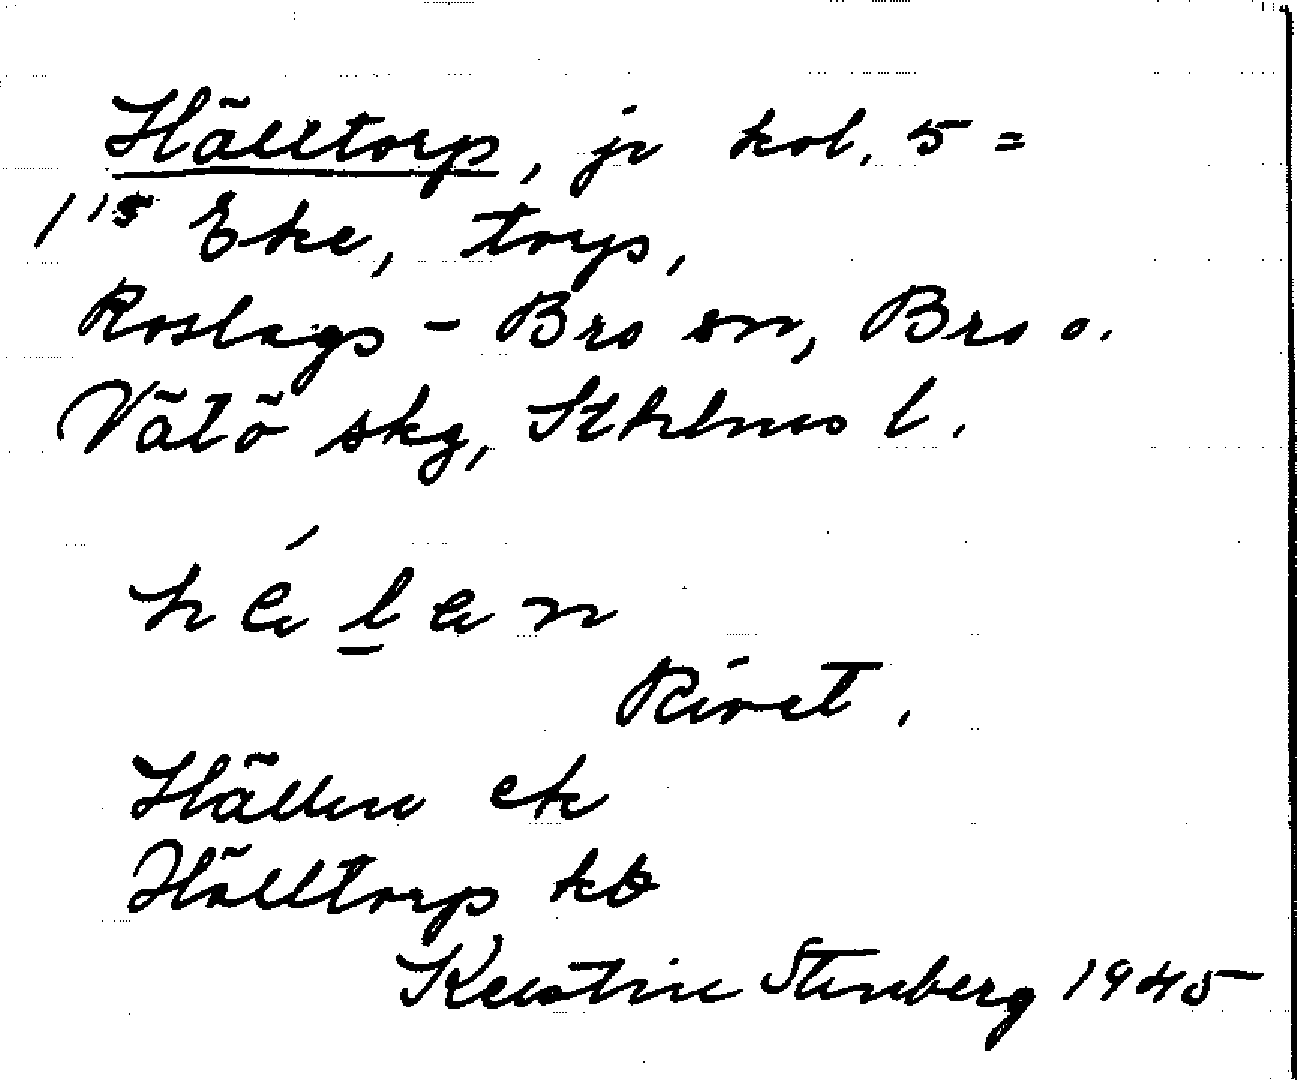 Hälltorp, jr kol. 5 =
1 15 Eke, torp,
Roslags-Bro sn, Bro o.
Vätö skg, Sthlms l.
hɛ́lan
Riret.
Hällen ek
Hälltorp kb
Kerstin Stenberg 1945